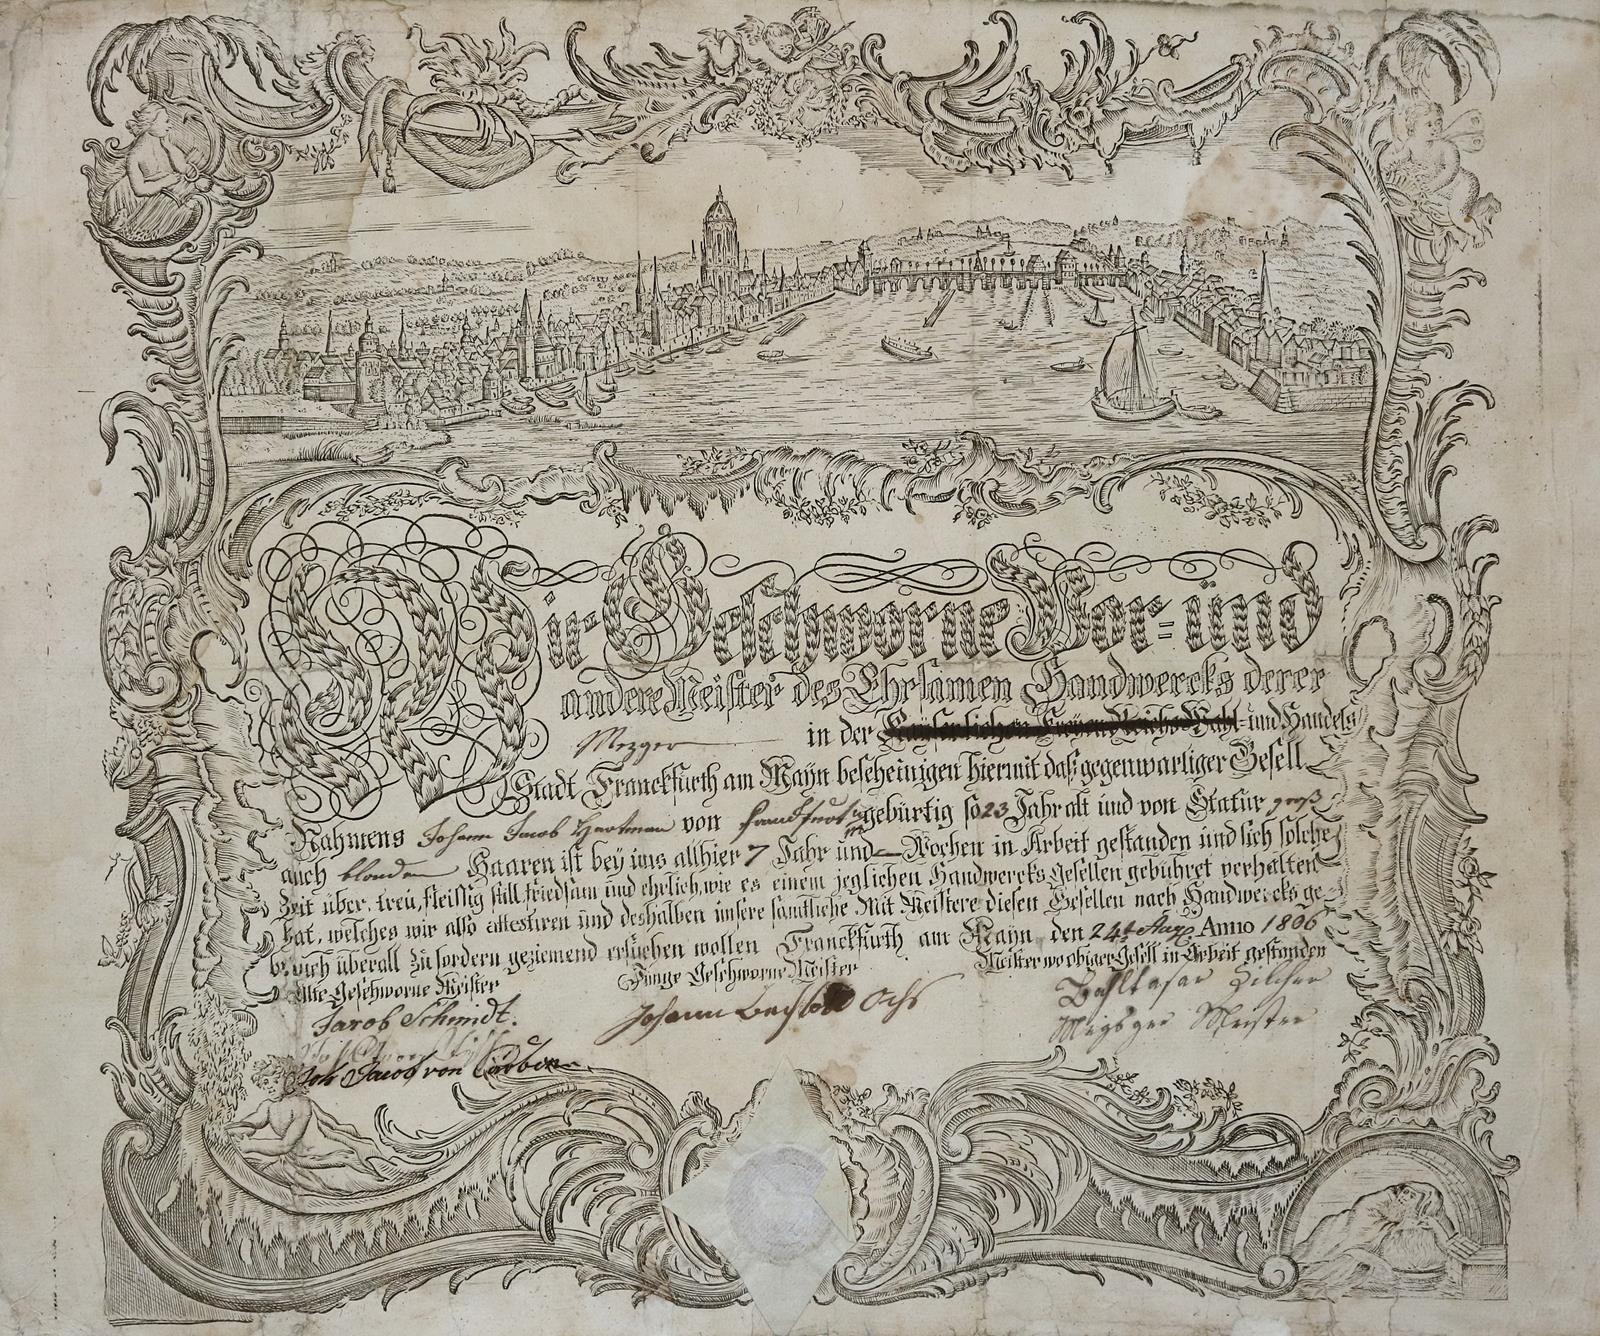 Wir Geschworne Vor- und
andere Meister des Ehrsamen Handwercks derer
Mezger in der Kayserlichen Freyen Reichs Wahl- und Handels
Stadt Franckfurth am Mayn bescheinigen hiermit daß gegenwärtiger Gesell
Nahmens Johann Jacob Hartman von Frandfurt gebürtig so 23 Jahr alt und von Statur groß
auch blonden Haaren ist bey uns allhier 7 Jahr und — Wochen in Arbeit gestanden und sich solche
Zeit über, treu, fleissig still, friedsam und ehrlich, wie es einem jeglichen Handwercks Gesellen gebühret verhalten
hat, welches wir also attestiren und deshalben unsere sämtliche Mit Meistere diesen Gesellen nach Handwercks ge-
brauch überall zu fordern geziemend ersuchen wollen Franckfurth am Mayn den 24t Aug Anno 1806
Alte Geschworne Meister
Junge Geschworne Meister
Meister wo obiger Gesell in Arbeit gestanden
Jacob Schmidt.
Johann Ochs
Meister
Joh Jacob von